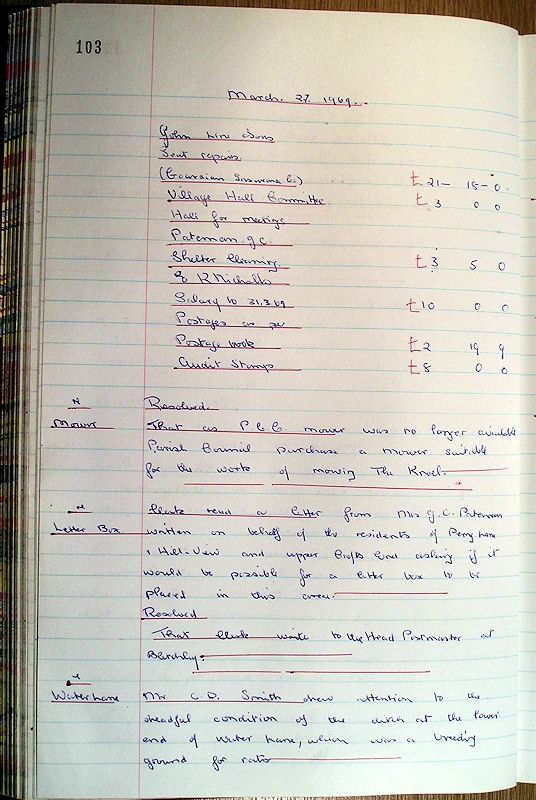 103
March. 27. 1969.
John Line Sons
Seat repairs
(Guardian Insurance Co.) £21 - 15 - 0
Village Hall Committee £3 0 0
Hall for meetings
Pateman J.C.
Shelter Cleaning £3 5 0
S R Nicholls
Salary to 31.3.69 £10 0 0
Postages as per
Postage book £2 19 9
Audit Stamp £8 0 0
N Resolved.
Mower That as P.C.C. mower was no longer available
Parish Council purchase a mower suitable
for the work of mowing The Knoll.
Clerk read a letter from Mrs J.C. Pateman
Letter Box written on behalf of the residents of Perry Lane
, Hill-View and upper End asking if it
would be possible for a letter box to be
placed in this area.
Resolved
That Clerk write to the Head Postmaster at
Bletchley.
Water Lane Mr C.D. Smith drew attention to the
dreadful condition of the ditch at the lower
end of Water Lane, which was a breeding
ground for rats